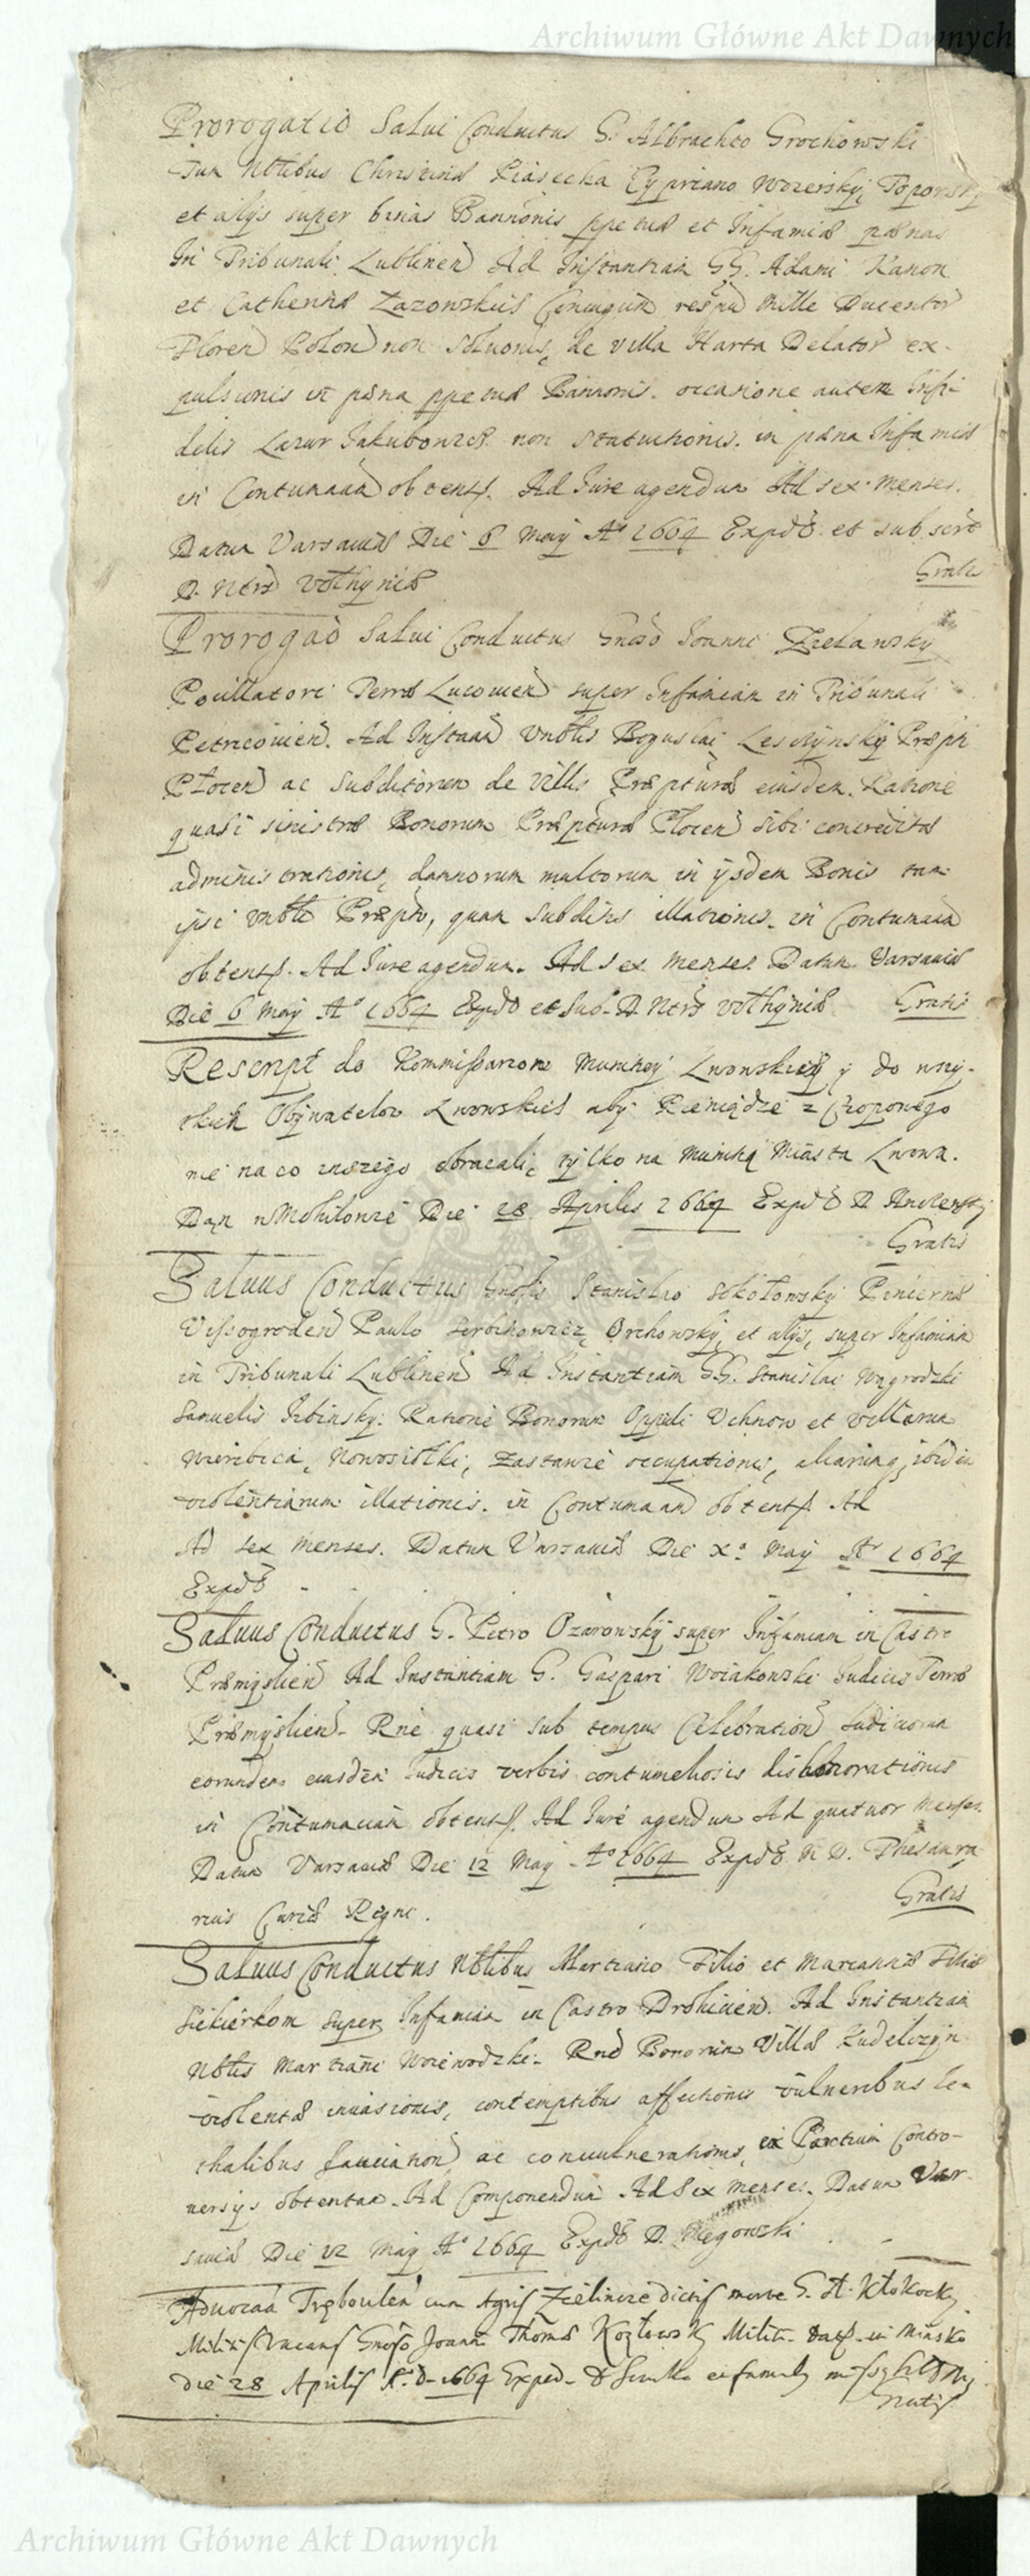 Archiwum Główne Akt Dawnych
Prorogatio Salui Conductus G. Albrachto Grochowski
Tum Nblibus Christina Piasecka Cypriano Wozensky, Toporsky
et alijs super binas Bannonis ppetuæ et Infamiæ pænas
In Tribunali Lublinen Ad Instantiam GG. Adami Kanon
et Catherinæ Zazowskich Coniugum respu mille Ducentor
Floren Polon non Soluonis, de villa Harta Delator ex-
pulsionis in pæna ppetuæ Bannonis. occasione autem Infi-
delis Lazur Jakubowicz non Statuitionis. in pæna Infamiæ
in Contumaam obtent. Ad Iure agendum Ad sex menses.
Datum Varsauiæ Die 6 May Aº 1664 Expdt et sub
D. Ntrs Volhyniæ
Gratis
Prorogao Salui Conductus Gnoso Ioanni Zielansky
Pocillatori Terræ Lucouien super Infamiam in Tribunali
Petricouien. Ad Instaam Vnblis Boguslai Lesczynsky Præpti
Plocen ac Subditorum de Villis Præpturæ eiusdem. Ratione
quasi sinistræ Bonorum Præpturæ Plocen sibi concreditæ
administrationis, damnorum multorum in ijsdem Bonis tam
ipsi Vnbli Præpto, quam Subditis illationis. in Contumaam
obtent. Ad Iure agendum. Ad sex menses Datum Varsauiæ
Die 6 May Aº 1664 Expdt et Sub. D Ntrs Volhyniæ Gratis
Rescript do Kommissarzow Munitiey Lwowskiey y do wszy-
stkich Obywatelow Lwowskich aby Pieniądze z Czopowego
nie na co inszego obracali, tylko na Munitią Miasta Lwowa.
Dan w Mohilowie Die 28 Aprilis 1664 Expdt D
Gratis
Saluus Conductus Gnosis Stanislao Sokołowsky Pincernæ
Vissogroden Paulo Orchowsky, et alijs, super Infamiam
in Tribunali Lublinen Ad Instantiam GG. Stanislai Wygrodzki
Samuelis Irbinsky. Ratione Bonorum Oppidi Vchnow et villarum
Wierzbica, Nowosiołki, Zastawie occupationis, aliarumq, ibidem
violentiarum illationis. in Contumaam obtent. Ad
Ad sex menses. Datum Varsauiæ Die Xª May Aº 1664
Expdt
Saluus Conductus G. Petro Ozarowsky super Infamiam in Castro
Præmyslien Ad Instantiam G. Gaspari Woiakowski Iudicis Terræ
Præmyslien. Rne quasi sub tempus Celebration Iudiciorum
eorundem eiusdem Iudicis verbis contumeliosis dishonorationis
in Contumaciam obtent. Ad Iure agendum Ad quatuor menses.
Datum Varsauiæ Die 12 May Aº 1664 Expdt D. Thesaura-
rius Curiæ Regni.
Gratis
Saluus Conductus Nblibus Martiano Filio et Mariannæ Filiæ
Siekierkom super Infamiam in Castro Drohicien. Ad Instantiam
Nblis Martiani Woiewodzki. Rne Bonorum Villæ Kudelczyn
violentæ inuasionis, contemptibus affectionis vulneribus le-
thalibus sauciation ac conuulnerationis, ex Partium Contro-
uersijs obtentam. Ad Componendum. Ad Sex menses. Datum Var-
sauiæ Die 12 May Aº 1664 Expdt D. Niegowski
Aduocaa Tręboulen cum Agris Zielincze dictis morte G. A. Kłokocky
Militis vacans Gnoso Joanni Thomæ Kozłowsky Militi. Dat. in Minsko
Die 28 Aprilis A. d. 1664 Exped.
Gratis
Archiwum Główne Akt Dawnych